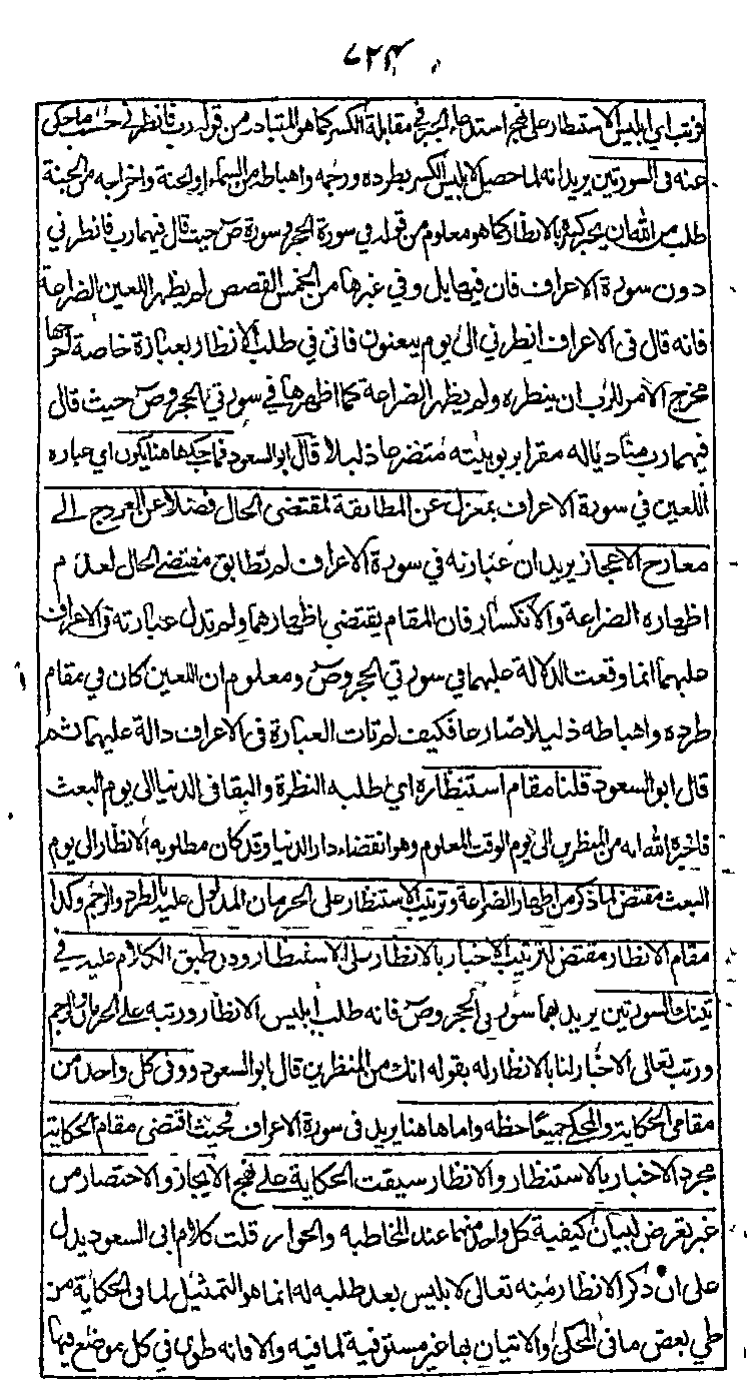 ٧٢٣
فرتب اي ابليس الاستنظار على نهج استدعاء الجبر في مقابلة الكسر كما هو المتبادر من قوله رب فانظرني حسب ما حكي
عنه في السورتين يريد انه لما حصل لابليس الكسر بطرده ورجمه واهباطه من السماء او الجنة واخراجه من الجنة
طلب من الله ان يجبر كسره بالانظار كما هو معلوم من قوله في سورة الحجر وسورة ص حيث قال فيهما رب فانظرني
دون سورة الاعراف فان فيها بل وفي غيرها من القصص لم يظهر اللعين الضراعة
فانه قال في الاعراف انظرني الى يوم يبعثون فاتى في طلب الانظار بعبارة خاصة اخرجها
مخرج الامر للرب ان ينظره ولم يظهر الضراعة كما اظهرها في سورتي الحجر وص حيث قال
فيهما رب مناديا له مقرا بربوبيته متضرعا ذليلا قال ابو السعود فما حكي ها هنا يكون اي عباره
اللعين في سورة الاعراف بمعزل عن المطابقة لمقتضى الحال فضلا عن العروج الى
معارج الاعجاز يريد ان عبارته في سورة الاعراف لم تطابق مقتضى الحال لعدم
اظهاره الضراعة والانكسار فان المقام يقتضي اظهارهما ولم تدل عبارته في الاعراف
عليهما انما وقعت الدلالة عليهما في سورتي الحجر وص ومعلوم ان اللعين كان في مقام
طرده واهباطه ذليلا ضارعا فكيف لم تات العبارة في الاعراف دالة عليهما ثم
قال ابو السعود قلنا مقام استنظاره اي طلبه النظرة والبقا في الدنيا الى يوم البعث
فاخبره الله انه من المنظرين الى يوم الوقت المعلوم وهو انقضاء دار الدنيا وقد كان مطلوبه الانظار الى يوم
البعث مقتض لما ذكر من اظهار الضراعة وترتيب الاستنظار على الحرمان المدلول عليه بالطرد والرجم وكذا
مقام الانظار مقتض لترتيب الاخبار بالانظار على الاستنظار وقد طبق الكلام عليه في
تينك السورتين يريد بهما سورتي الحجر وص فانه طلب ابليس الانظار ورتبه على الحرمان والرجم
ورتب تعالى الاخبار لنا بالانظار له بقوله انك من المنظرين قال ابو السعود ووفى كل واحد من
مقامي الحكاية والمحكي جميعا حظه واما ها هنا يريد في سورة الاعراف فحيث اقتضى مقام الحكاية
مجرد الاخبار بالاستنظار والانظار سيقت الحكاية على نهج الايجاز والاختصار من
غير تعرض لبيان كيفية كل واحد منهما عند المخاطبه والحوار قلت كلام ابي السعود يدل
على ان ذكر الانظار منه تعالى لابليس بعد طلبه له انما هو التمثيل لما في الحكاية من
طي بعض ما في المحكي والاتيان بها غير مستوفية لما فيه والا فانه طوي في كل موضع فيها